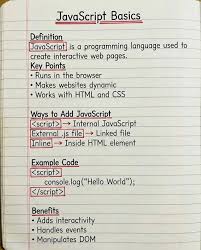 JavaScript Basics
Definition
JavaScript is a programming language used to
create interactive web pages.
Key Points
• Runs in the browser
• Makes websites dynamic
• Works with HTML and CSS
Ways to Add JavaScript
<script> → Internal JavaScript
External .js file → Linked file
Inline → Inside HTML element
Example Code
<script>
console.log("Hello World");
</script>
Benefits
• Adds interactivity
• Handles events
• Manipulates DOM